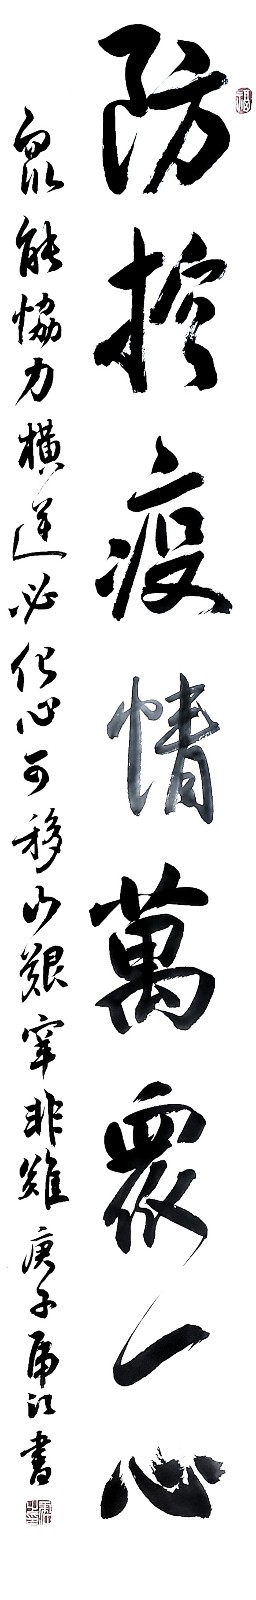 防控疫情萬衆一心
衆能協力橫逆必化心可移山艱窂非難 庚子 虎江書